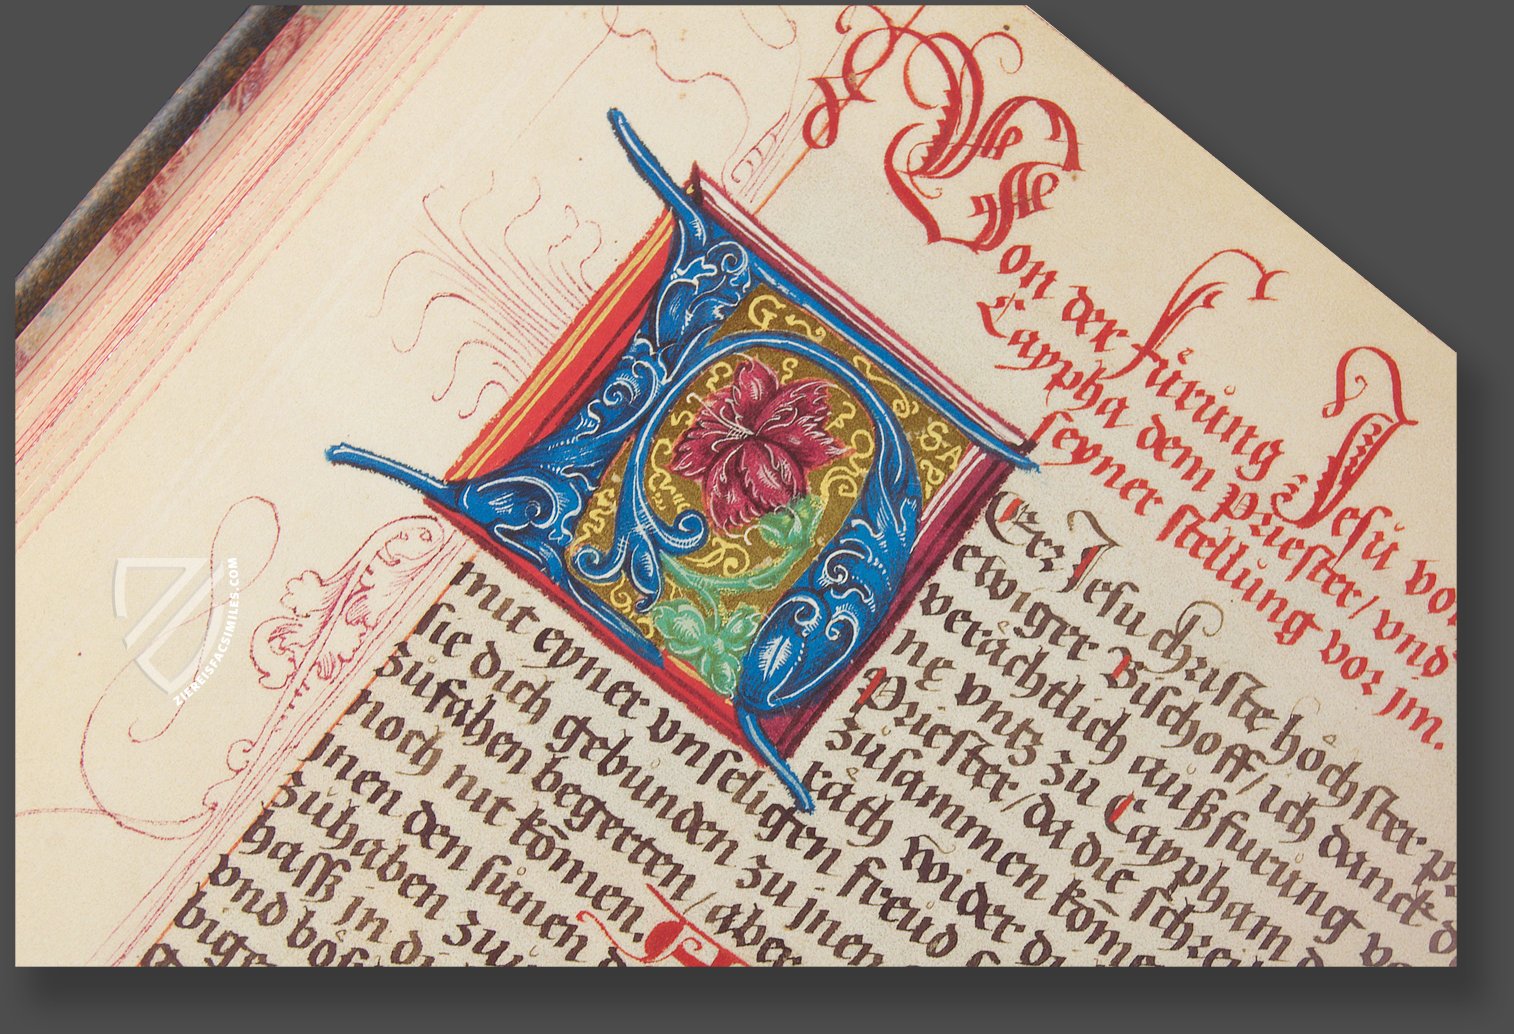 Von der fürung Jesu vor
Caypha dem Priester/ vnd
seyner stellung vor jm.
HErr Jesu christe höchster
ewiger Bischoff/ ich danck d
verächtlich außfürung vo
ne vntz zu Caypham
Priester/ da die schrei
zusammen kōm
räth wider d
mit eyner vnseligen freüd
sie dich gebunden zu jnen
zufahen begerten/ aber
noch nit kōmen.
jnen den sünen d
zuhaben zu
hassz in d
vnd bös
bige
G
ZIEREISFACSIMILES.COM